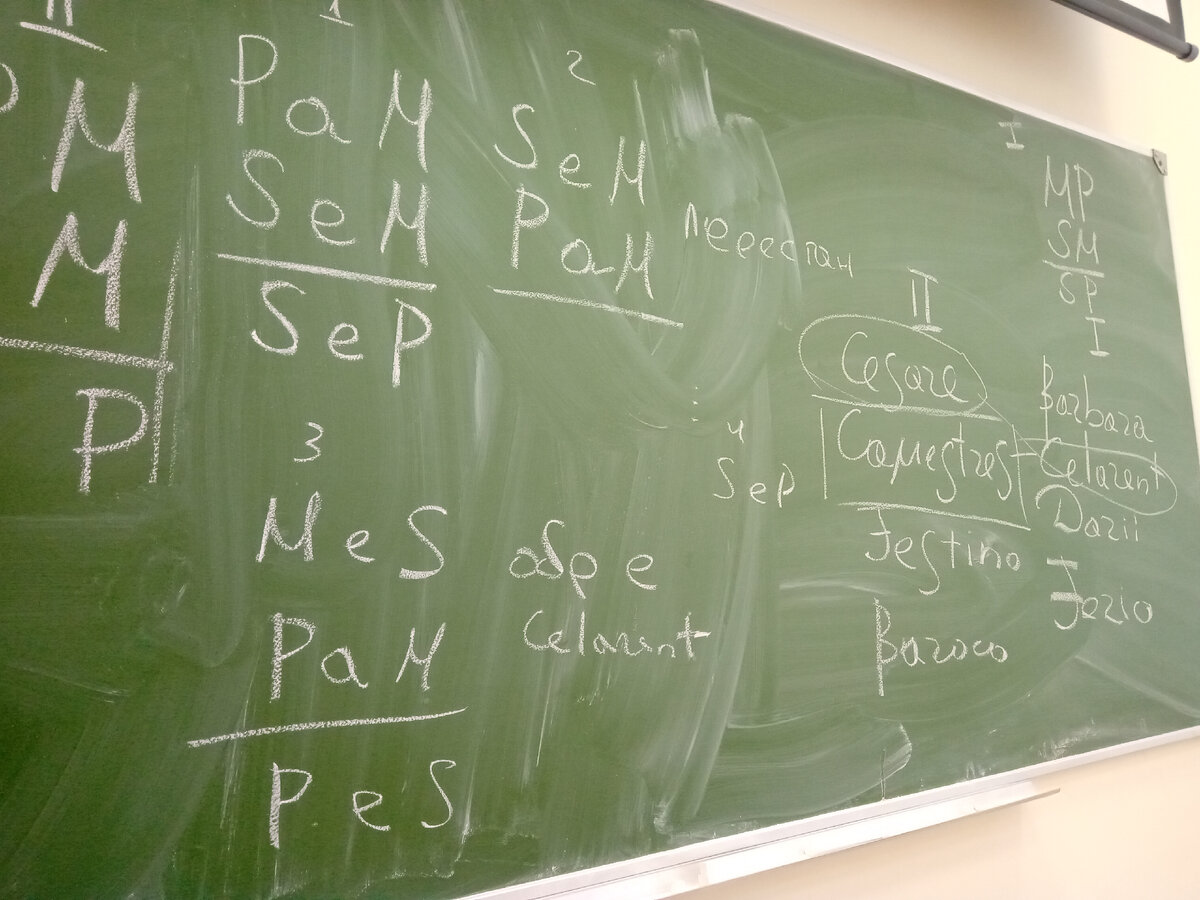 II
P M
M
P
1
PaM
SeM
SeP
2
SeM
PaM
перестан
3
MeS
PaM
PeS
обр e
Celarent
4
SeP
II
Cesare
Camestres
Festino
Baroco
I
MP
SM
SP
I
Barbara
Celarent
Darii
Ferio